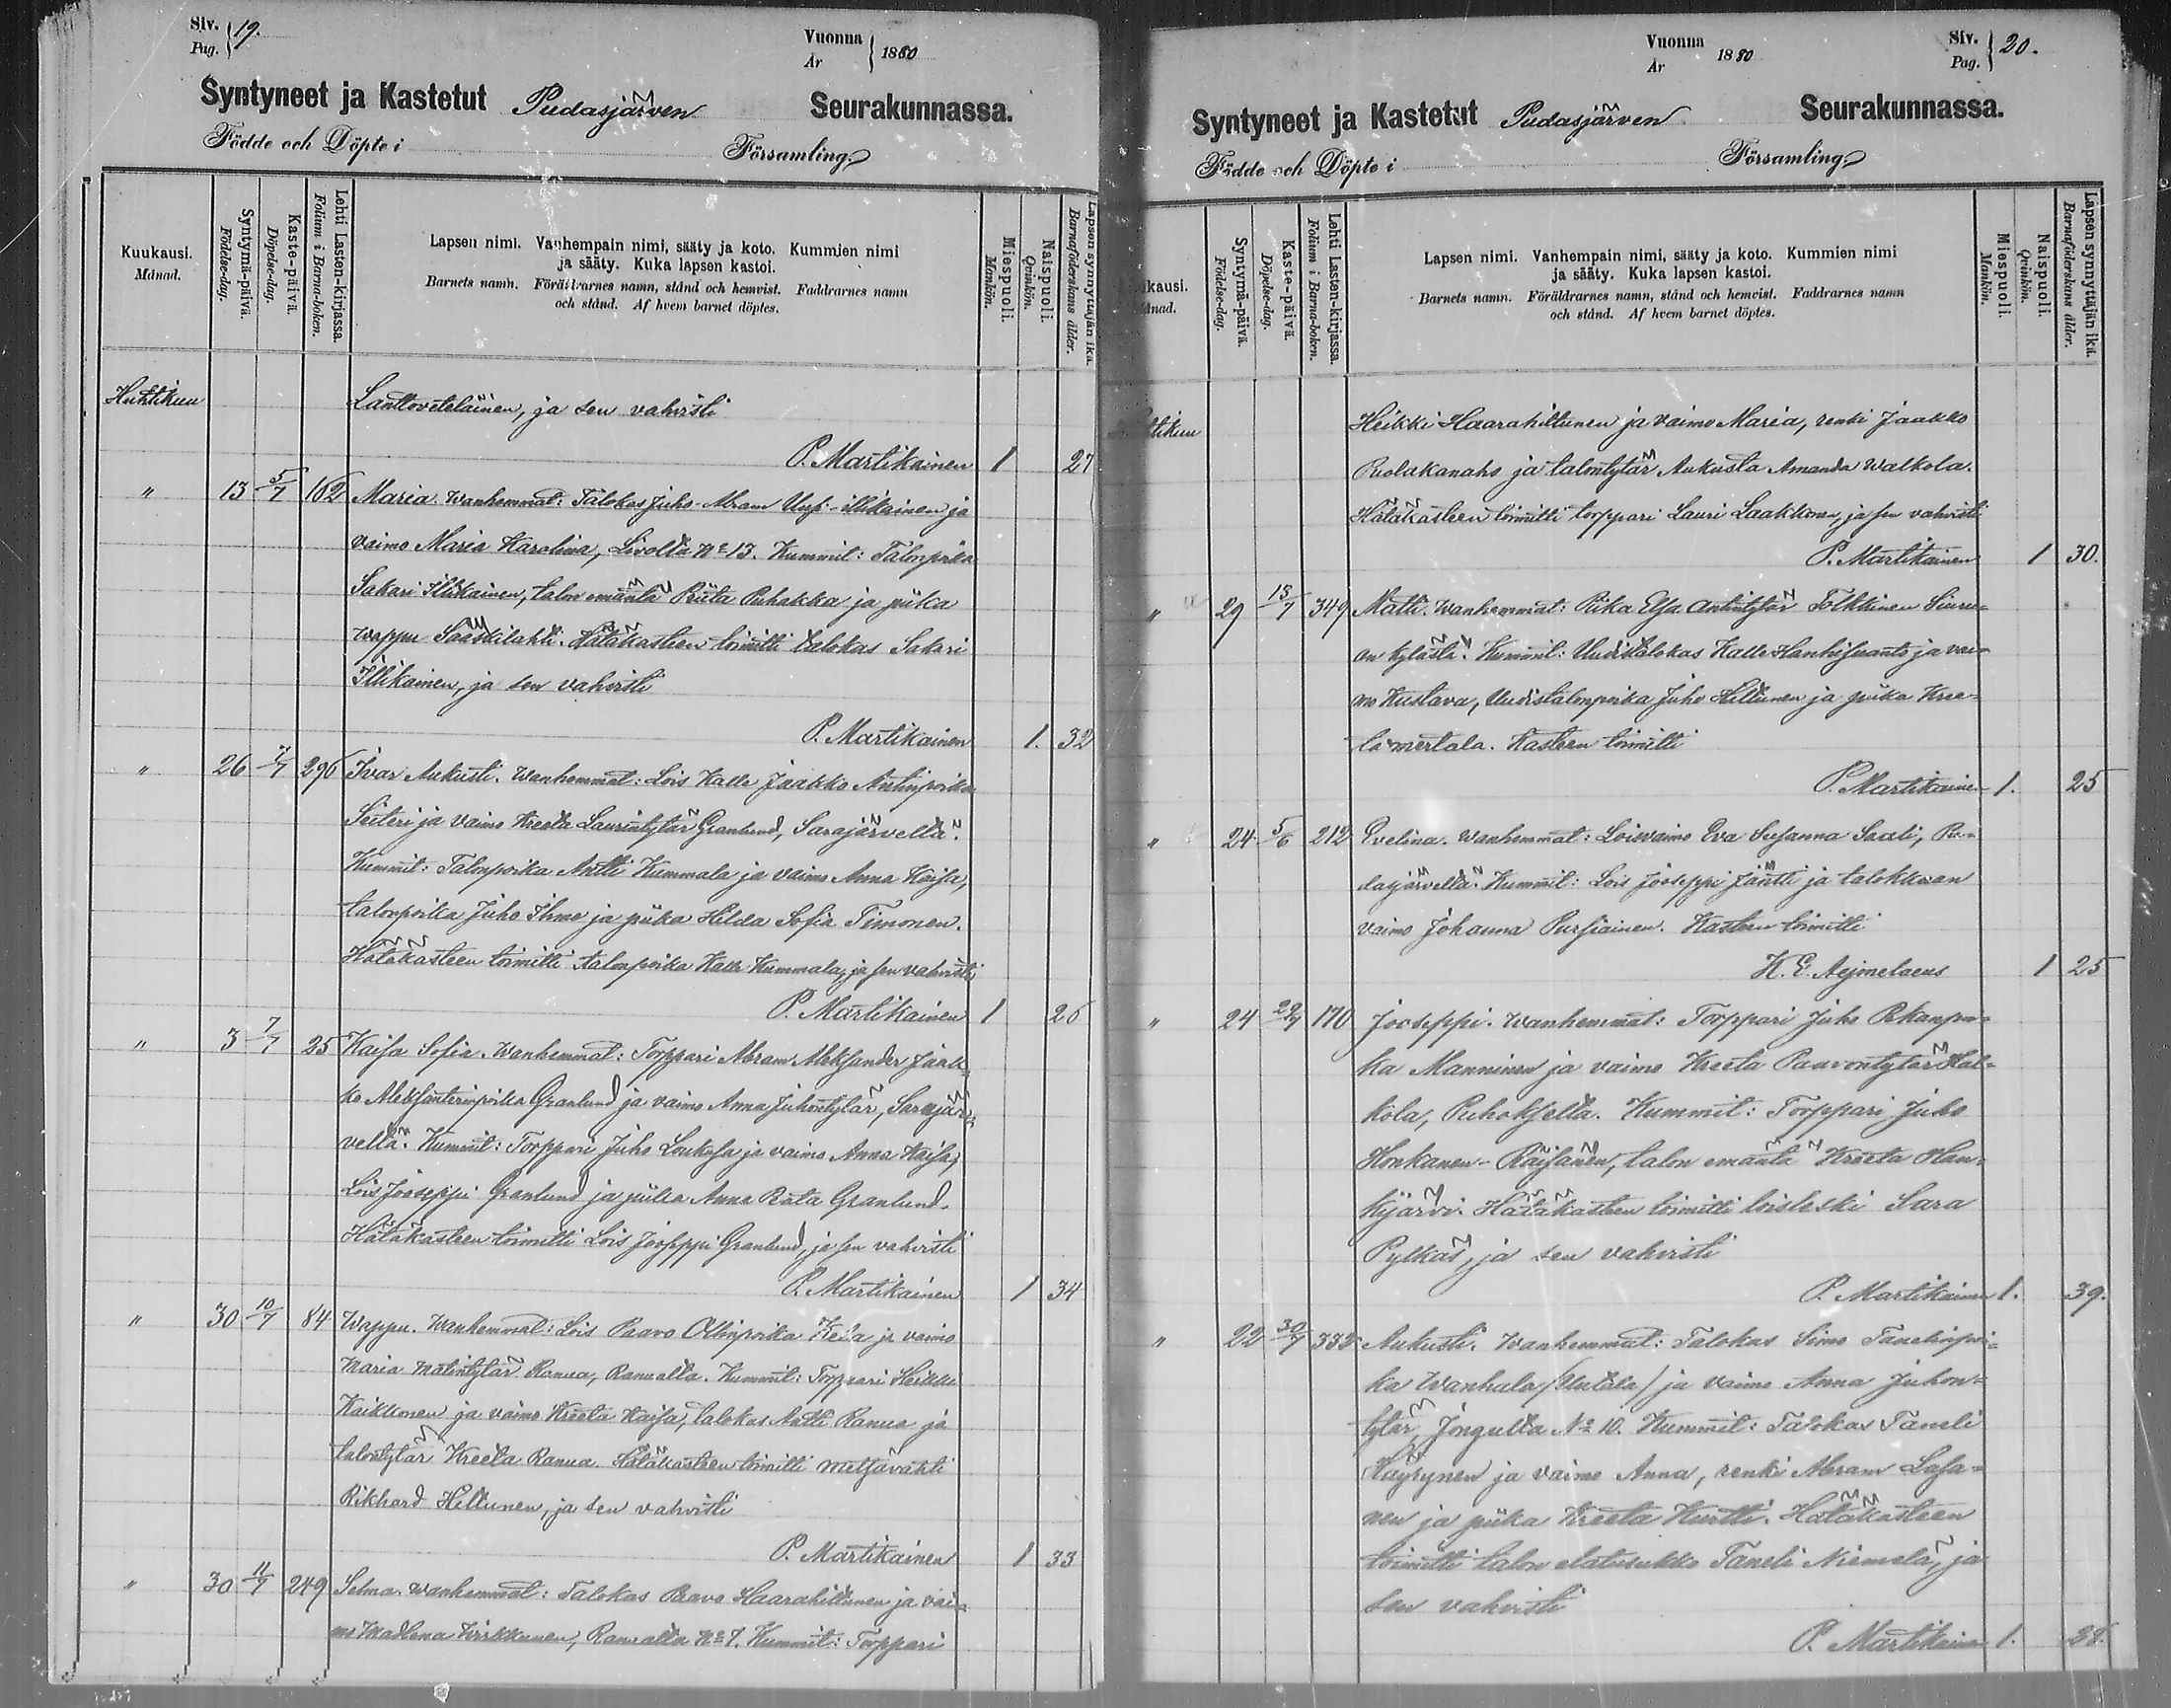 Siv. 19.
Pag.
Vuonna 1880
År
Syntyneet ja Kastetut Pudasjärven Seurakunnassa.
Födde och Döpte i Församling.
Kuukausi.
Månad.
Syntymä-päivä.
Födelse-dag.
Kaste-päivä.
Döpelse-dag.
Lehti Lasten-kirjassa.
Folium i Barna-boken.
Lapsen nimi. Vanhempain nimi, sääty ja koto. Kummien nimi
ja sääty. Kuka lapsen kastoi.
Barnets namn. Föräldrarnes namn, stånd och hemvist. Faddrarnes namn
och stånd. Af hvem barnet döptes.
Miespuoli.
Mankön.
Naispuoli.
Qvinkön.
Lapsen synnyttäjän ikä.
Barnaföderskans ålder.
Huhtikuu ja sen vahvisti
P. Martikainen 1 27
" 13 5/7 162 Maria. Wanhemmat: Talokas Juho Abram Illikainen ja
vaimo Maria Karolina, Livolta No 13. Kummit: Talonpoika
Sakari Illikainen, talon emäntä Riita Puhakka ja piika
Wappu Sääskilahti. Hätäkasteen toimitti talokas Sakari
Illikainen, ja sen vahvisti
P. Martikainen 1. 32
" 26 7/7 296 Ivar Aukusti. Wanhemmat: Lois Kalle Jaakko Antinpoika
Seiteri ja vaimo Kreeta Laurintytär Granlund, Sarajärveltä.
Kummit: Talonpoika Antti Kummala ja vaimo Anna Kaisa,
talonpoika Juho Ihme ja piika Hilda Sofia Timonen.
Hätäkasteen toimitti talonpoika Kalle Kummala, ja sen vahvisti
P. Martikainen 1 26
" 3 7/7 25 Kaisa Sofia. Wanhemmat: Torppari Abram Aleksander Jaak-
ko Aleksanterinpoika Granlund ja vaimo Anna Juhontytär, Sarajär-
veltä. Kummit: Torppari Juho Loukusa ja vaimo Anna Kaisa,
Lois Jooseppi Granlund ja piika Anna Riita Granlund.
Hätäkasteen toimitti Lois Jooseppi Granlund, ja sen vahvisti
P. Martikainen 1 34
" 30 10/7 84 Wappu. Wanhemmat: Lois Paavo Ollinpoika Kela ja vaimo
Maria Matintytär Ranua, Ranualta. Kummit: Torppari Heikki
Kaikkonen ja vaimo Kreeta Kaisa, talokas Antti Ranua ja
talontytär Kreeta Ranua. Hätäkasteen toimitti metsävahti
Rikhard Hiltunen, ja sen vahvisti
P. Martikainen 1 33
" 30 11/7 249 Selma. Wanhemmat: Talokas Paavo Haarahiltunen ja vai-
mo Madlena Kirikkunen, Ranualta No 7. Kummit: Torppari
Vuonna 1880
År
Siv. 20.
Pag.
Syntyneet ja Kastetut Pudasjärven Seurakunnassa.
Födde och Döpte i Församling.
kausi.
ånad.
Syntymä-päivä.
Födelse-dag.
Kaste-päivä.
Döpelse-dag.
Lehti Lasten-kirjassa.
Folium i Barna-boken.
Lapsen nimi. Vanhempain nimi, sääty ja koto. Kummien nimi
ja sääty. Kuka lapsen kastoi.
Barnets namn. Föräldrarnes namn, stånd och hemvist. Faddrarnes namn
och stånd. Af hvem barnet döptes.
Miespuoli.
Mankön.
Naispuoli.
Qvinkön.
Lapsen synnyttäjän ikä.
Barnaföderskans ålder.
tikuu Heikki Haarahiltunen ja vaimo Maria, renki Jaakko
Puolakanaho ja talontytär Aukusta Amanda Walkola.
Hätäkasteen toimitti torppari Lauri Laakkonen, ja sen vahvisti
P. Martikainen 1 30.
" 29 13/7 349 Matti. Wanhemmat: Piika Elsa Antintytär Tölkkinen Siuru-
an kylästä. Kummit: Uudistalokas Kalle Hanhisuanto ja vai-
mo Kustava, Uudistalonpoika Juho Hiltunen ja piika Kree-
ta Mertala. Kasteen toimitti
P. Martikainen 1. 25
" 24 5/6 212 Evelina. Wanhemmat: Loisvaimo Eva Susanna Saali, Pu-
dasjärveltä. Kummit: Lois Jooseppi Jäntti ja talokkaan
vaimo Johanna Pursiainen. Kasteen toimitti
K. E. Aejmelaeus 1 25
" 24 29/7 170 Jooseppi. Wanhemmat: Torppari Juho Pekanpoi-
ka Manninen ja vaimo Kreeta Paavontytär Hal-
kola, Puhokselta. Kummit: Torppari Juho
Honkanen-Räisänen, talon emäntä Kreeta Hau-
kijärvi. Hätäkasteen toimitti loisleski Sara
Pylkäs, ja sen vahvisti
P. Martikainen 1. 39.
" 22 30/7 332 Aukusti. Wanhemmat: Talokas Simo Tanelinpoi-
ka Wanhala /Uutala/ ja vaimo Anna Juhon-
tytär, Jongulta No 10. Kummit: Talokas Taneli
Häyrynen ja vaimo Anna, renki Abram Lasa-
nen ja piika Kreeta Kurtti. Hätäkasteen
toimitti talon elatusukko Taneli Niemelä, ja
sen vahvisti
P. Martikainen 1. 28.